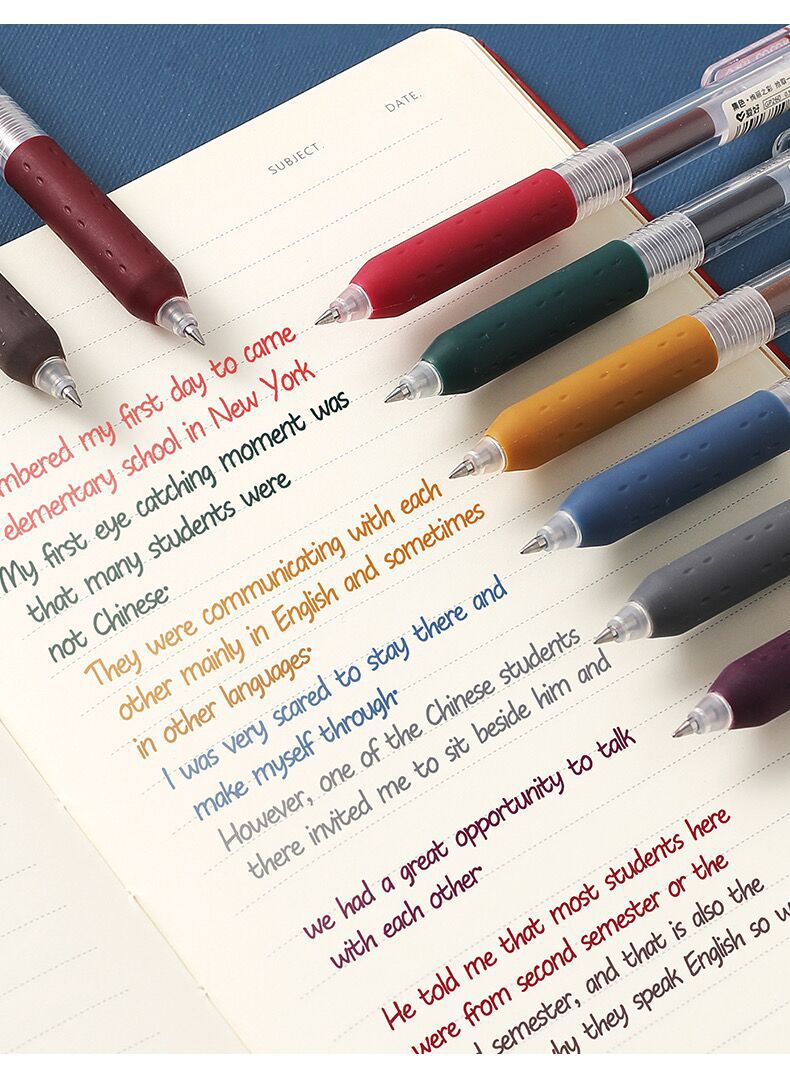 DATE.
SUBJECT.
集色·绚丽之彩
爱好
mbered my first day to came
elementary school in New York
My first eye catching moment was
that many students were
not Chinese·
They were communicating with each
other mainly in English and sometimes
in other languages·
I was very scared to stay there and
make myself through·
However, one of the Chinese students
there invited me to sit beside him and
we had a great opportunity to talk
with each other·
He told me that most students here
were from second semester or the
semester, and that is also the
hy they speak English so w